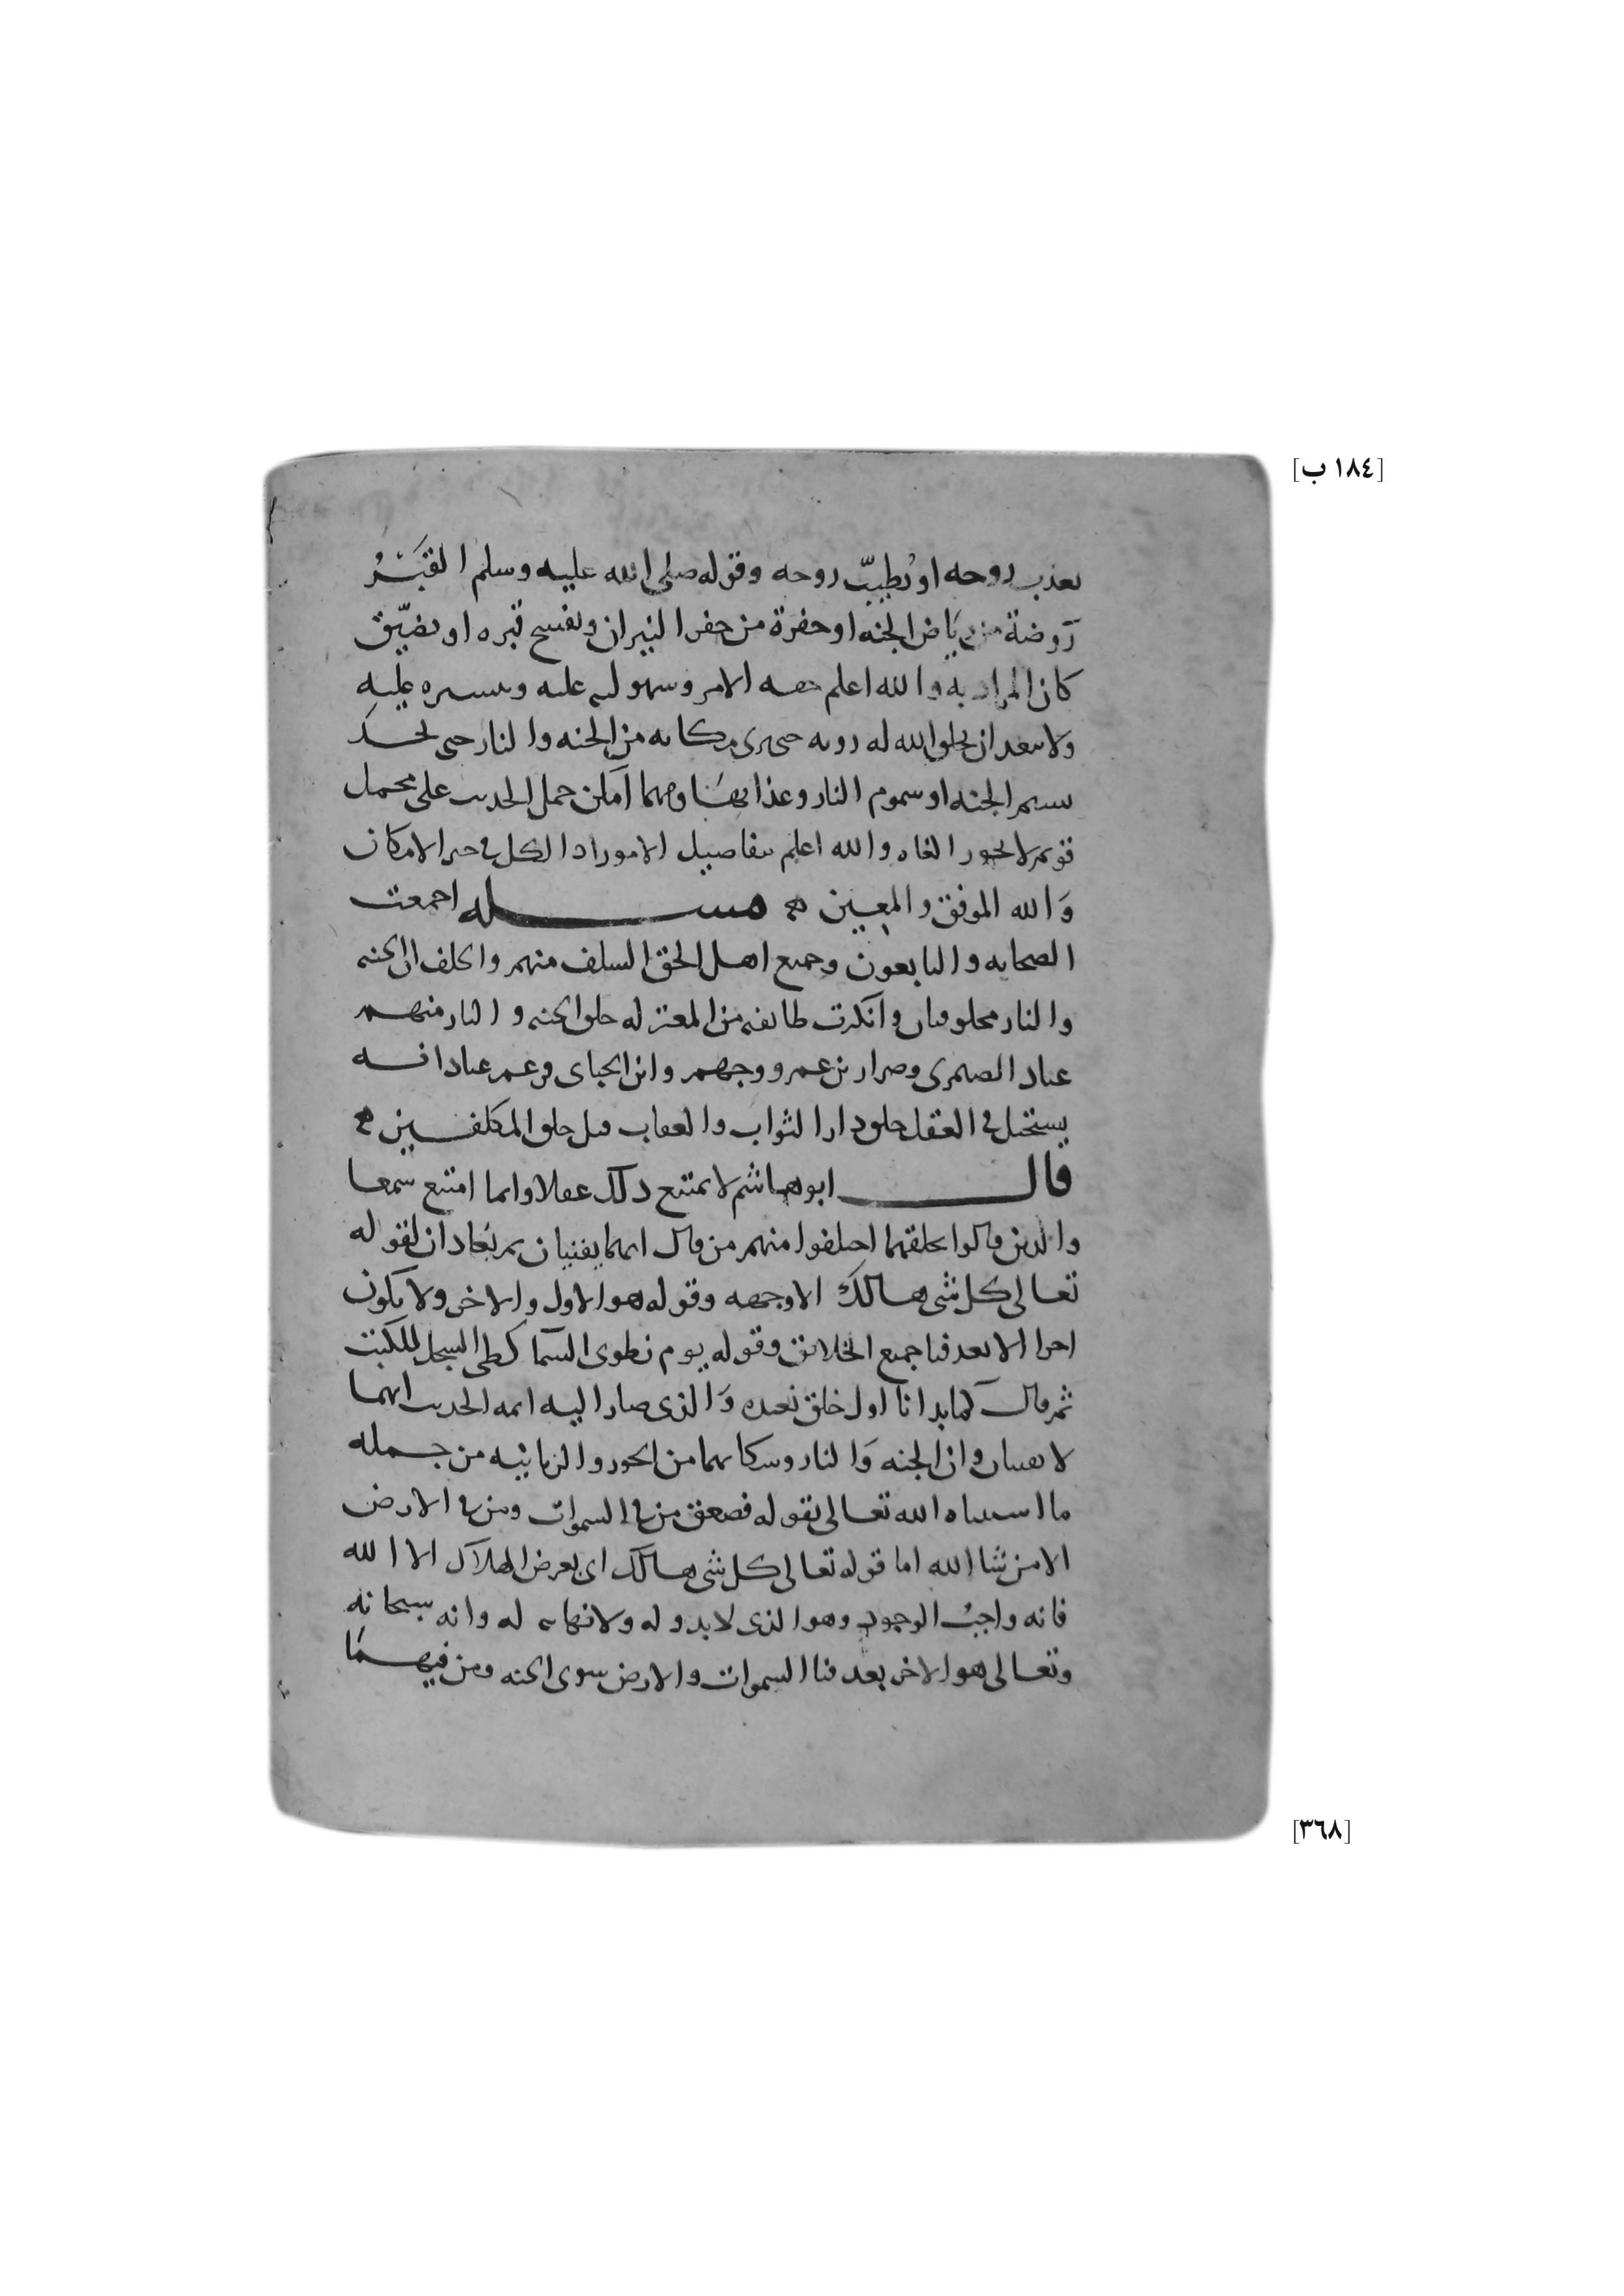 [١٨٤ ب]
يعذب روحه او يُطيّب روحه وقوله صلى الله عليه وسلم القبر
رَوضة من رياض الجنه او حفرة من حفر النيران ويفسح قبره او يضيّق
كان المراد به والله اعلم الامر وسهولته عليه وعسره عليه
ولا يبعد ان يخلق الله له رويه حتى يرى مكانه من الجنه والنار حتى يجد
نسيم الجنه او سموم النار وعذابها ومهما امكن حمل الحديث على محمل
قويم لا يجوز الغاه والله اعلم بتفاصيل الامور اذ الكل في حيز الامكان
وَالله الموفق والمعين مسله اجمعت
الصحابه والتابعون وجميع اهل الحق السلف منهم والخلف ان الجنه
والنار مخلوقتان وانكرت طايفه من المعتزله خلق الجنه والنار منهم
عباد الصيمرى وضرار بن عمرو وجهم وابن الجباى وزعم عباد انه
يستحيل في العقل خلق دار الثواب والعقاب قبل خلق المكلفين
قال ابو هاشم لا يمتنع ذلك عقلا وانما امتنع سمعا
والذين قالوا بخلقهما اختلفوا منهم من قال انهما يفنيان ثم يعادان لقوله
تعالى كل شى هالك الا وجهه وقوله هو الاول والاخر ولا يكون
اخرا الا بعد فنا جميع الخلايق وقوله يوم نطوى السما كطى السجل للكتب
ثم قال كما بدانا اول خلق نعيده وَالذى صار اليه ايمه الحديث انهما
لا يفنيان وان الجنه وَالنار وسكانهما من الحور والزبانيه من جمله
ما استثناه الله تعالى بقوله فصعق من في السموات ومن في الارض
الا من شا الله اما قوله تعالى كل شى هالك اى يعرض الهلاك الا الله
فانه واجبُ الوجود وهو الذى لا بدو له ولا نهايه له وانه سبحانه
وتعالى هو الاخر بعد فنا السموات والارض سوى الجنه ومن فيهما
[٣٦٨]